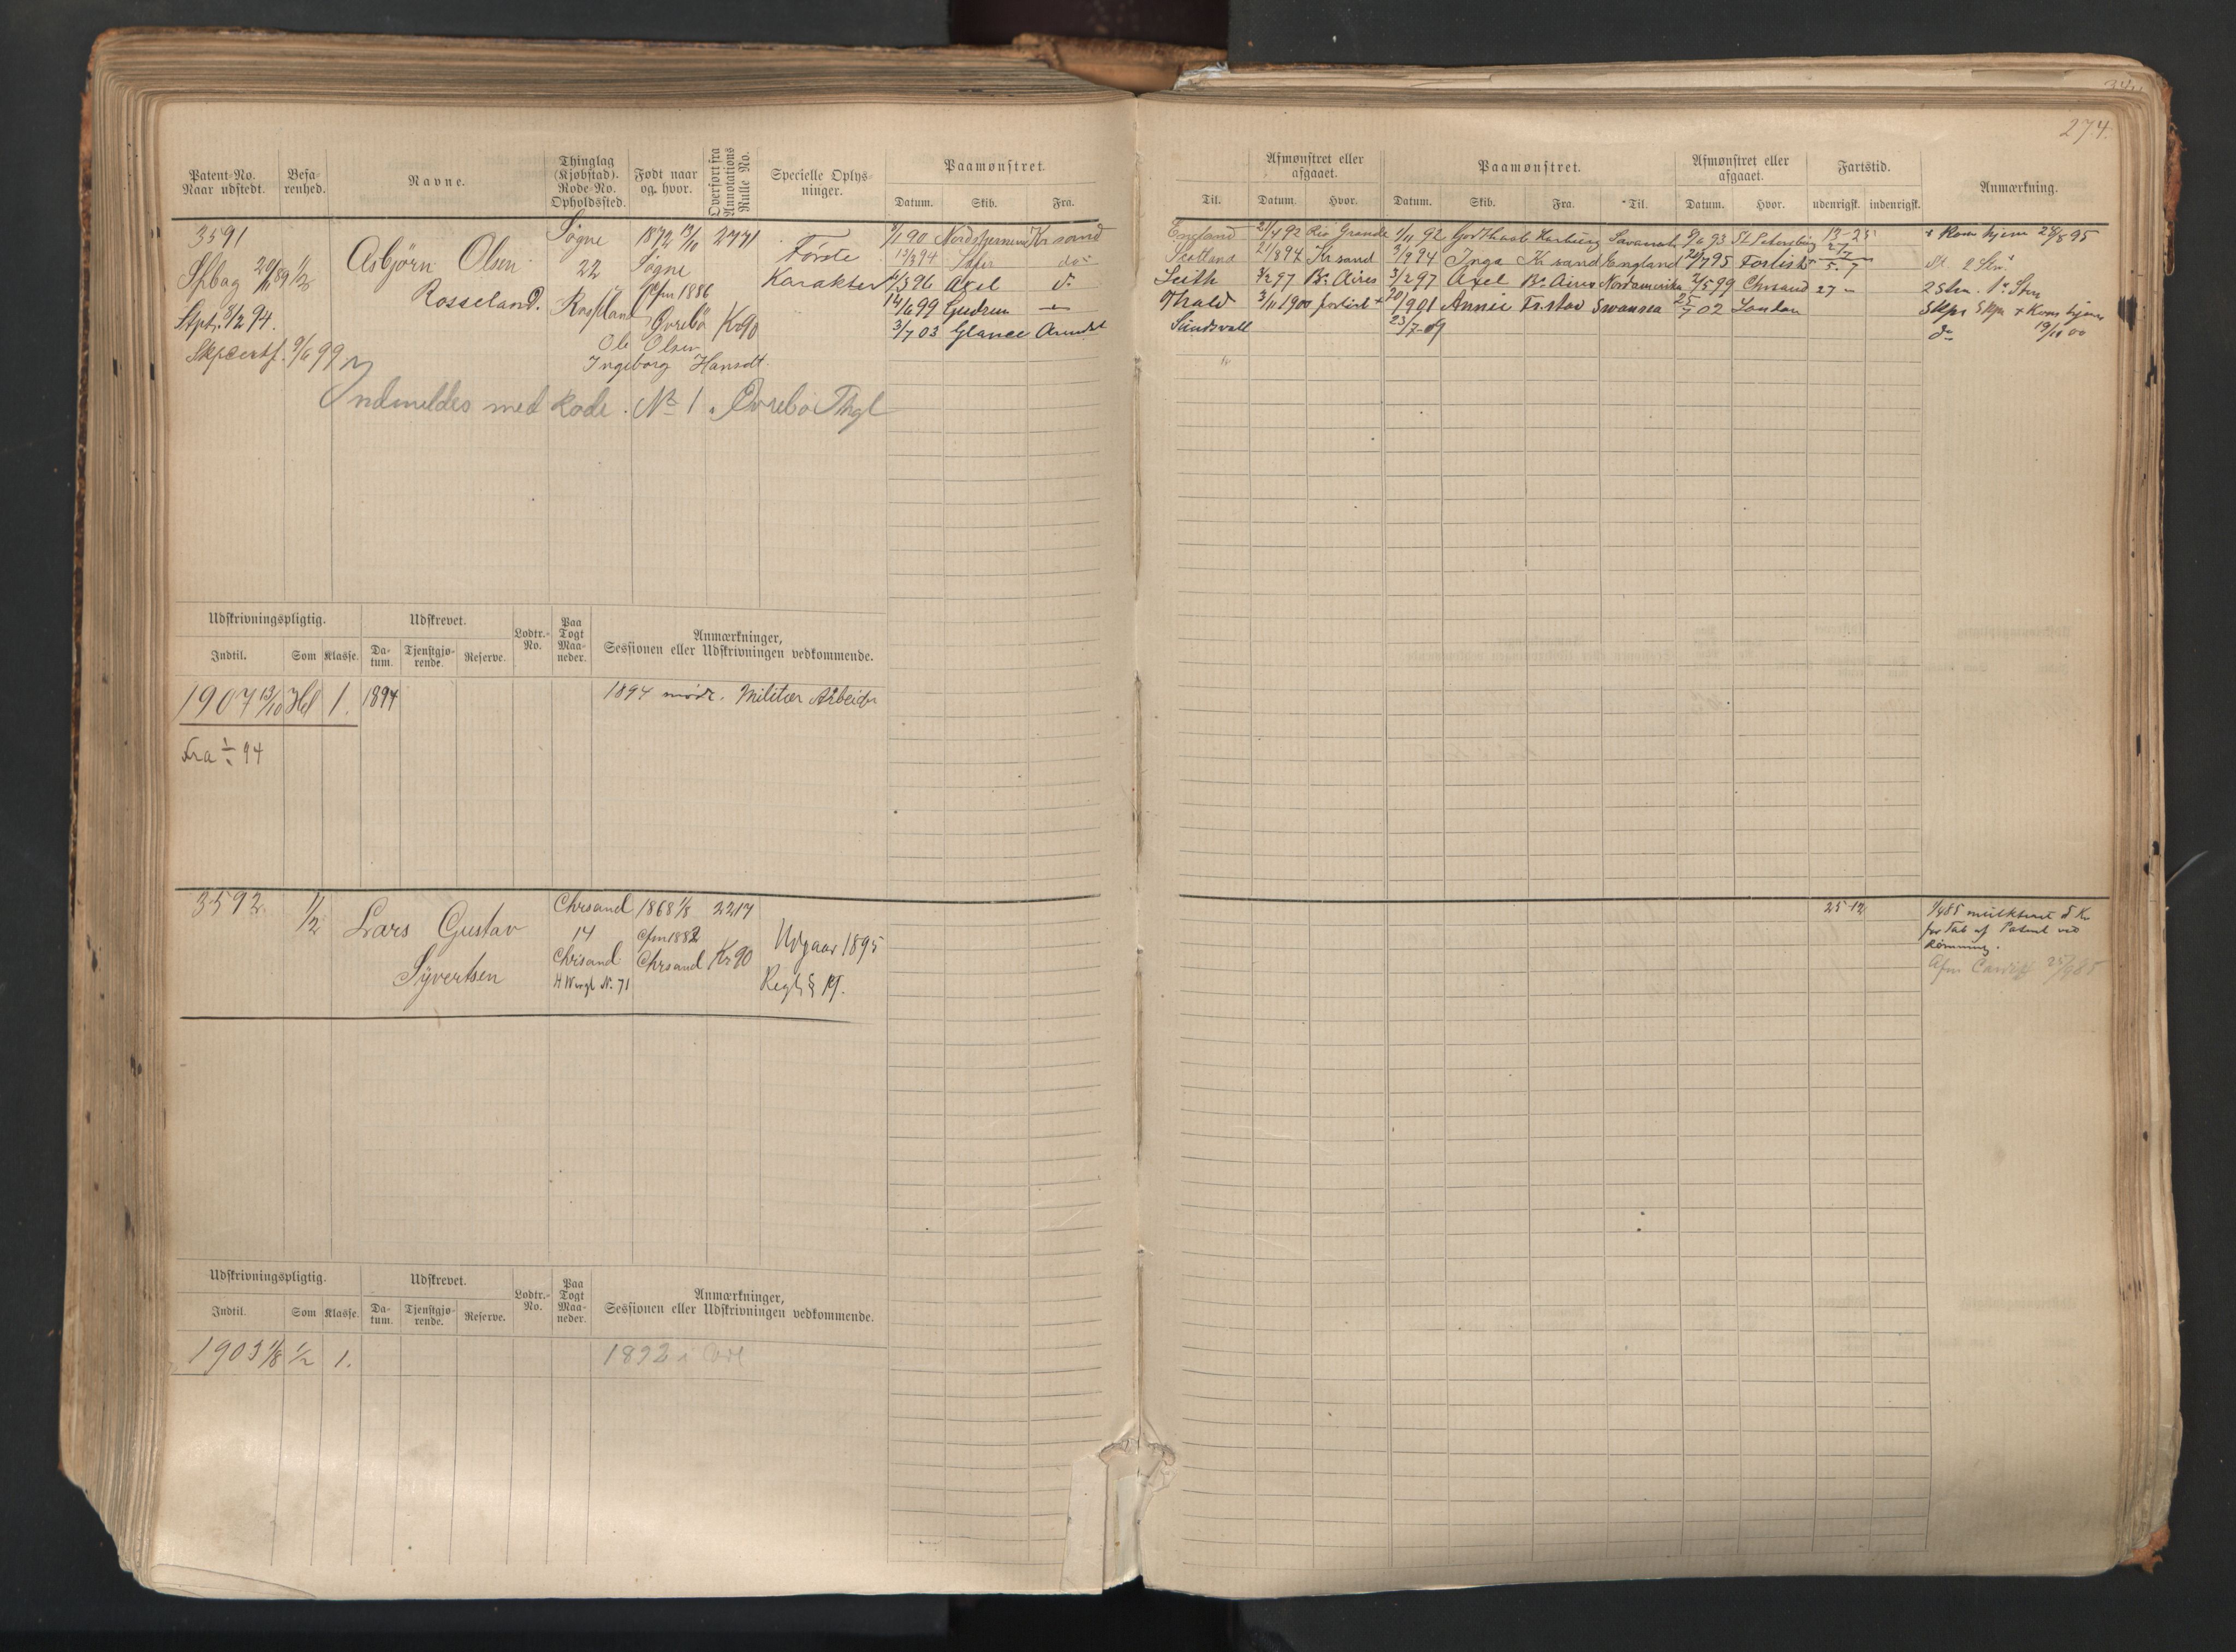 274.
Patent-No. Naar udstedt. Befarenhed. Navne. Thinglag (Kjøbstad). Rode-No. Opholdssted. Født naar og hvor. Overført fra Annotations Rulle No. Specielle Oplysninger. Paamønstret. Datum. Skib. Fra.
Til. Afmønstret eller afgaaet. Datum. Hvor. Paamønstret. Datum. Skib. Fra. Til. Afmønstret eller afgaaet. Datum. Hvor. Fartstid. udenrigsk. indenrigsk. Anmærkning.
3591 Asbjørn Olsen Søgne 1872 13/10 2771 Første
Sfbag 29/11 89 1/2 22 Søgne Karakter
Rosseland. Rossland Cfm 1886
Stpt. 8/2 94. Øvrebø Kr90
Ole Olsen
Skpcertf. 9/6 99 Ingeborg Hansdt.
Indmeldes med Rode No 1 Øvrebø Thgl
1/1 90 Nordstjernen Krsand England 21/4 92 Rio Grande 1/11 92 Godthaab Harburg Savanah 9/6 93 St Petersburg 13-25 + Kom hjem 28/8 95
13/3 94 do Scotland 21/8 94 Krsand 3/9 94 Inga Krsand England 29/7 95 Forlist + 27
1/3 96 Axel do Leith 3/2 97 Bs Aires 3/2 97 Axel Bs Aires Nordamerika 2/5 99 Chrsand 27 - 2 Stm. 1e Stm
14/6 99 Gudrun — Thald 3/11 1900 forlist + 20/1 901 Annie Fr.stad Swansea 25/7 02 London Skpr Skpr + Kom hjem 19/11 00
3/7 03 Glance Arendal Sundsvall 23/7-09 do
Udskrivningspligtig. Udskrevet. Lodtr.-No. Paa Togt Maaneder. Anmærkninger, Sessionen eller Udskrivningen vedkommende.
Indtil. Som Klasse. Datum. Tjenstgjørende. Reserve.
1907 13/10 Hel 1. 1894 1894 mødt. Militær Arbeider
Fra 1/1 94
3592. 1/2 Lars Gustav Chrsand 1868 1/8 2217
Syvertsen 14 Cfm 1882 Udgaar 1895
Chrisand Chrsand Kr90
H Wergl No. 71 Regl § 19.
25-12 1/4 85 mulkteret 5 Kr
for Tab af Patent ved
Rømning.
Afm Cardiff 25/9 85
Udskrivningspligtig. Udskrevet. Lodtr.-No. Paa Togt Maaneder. Anmærkninger, Sessionen eller Udskrivningen vedkommende.
Indtil. Som Klasse. Datum. Tjenstgjørende. Reserve.
1903 1/8 1/2 1. 1892 i